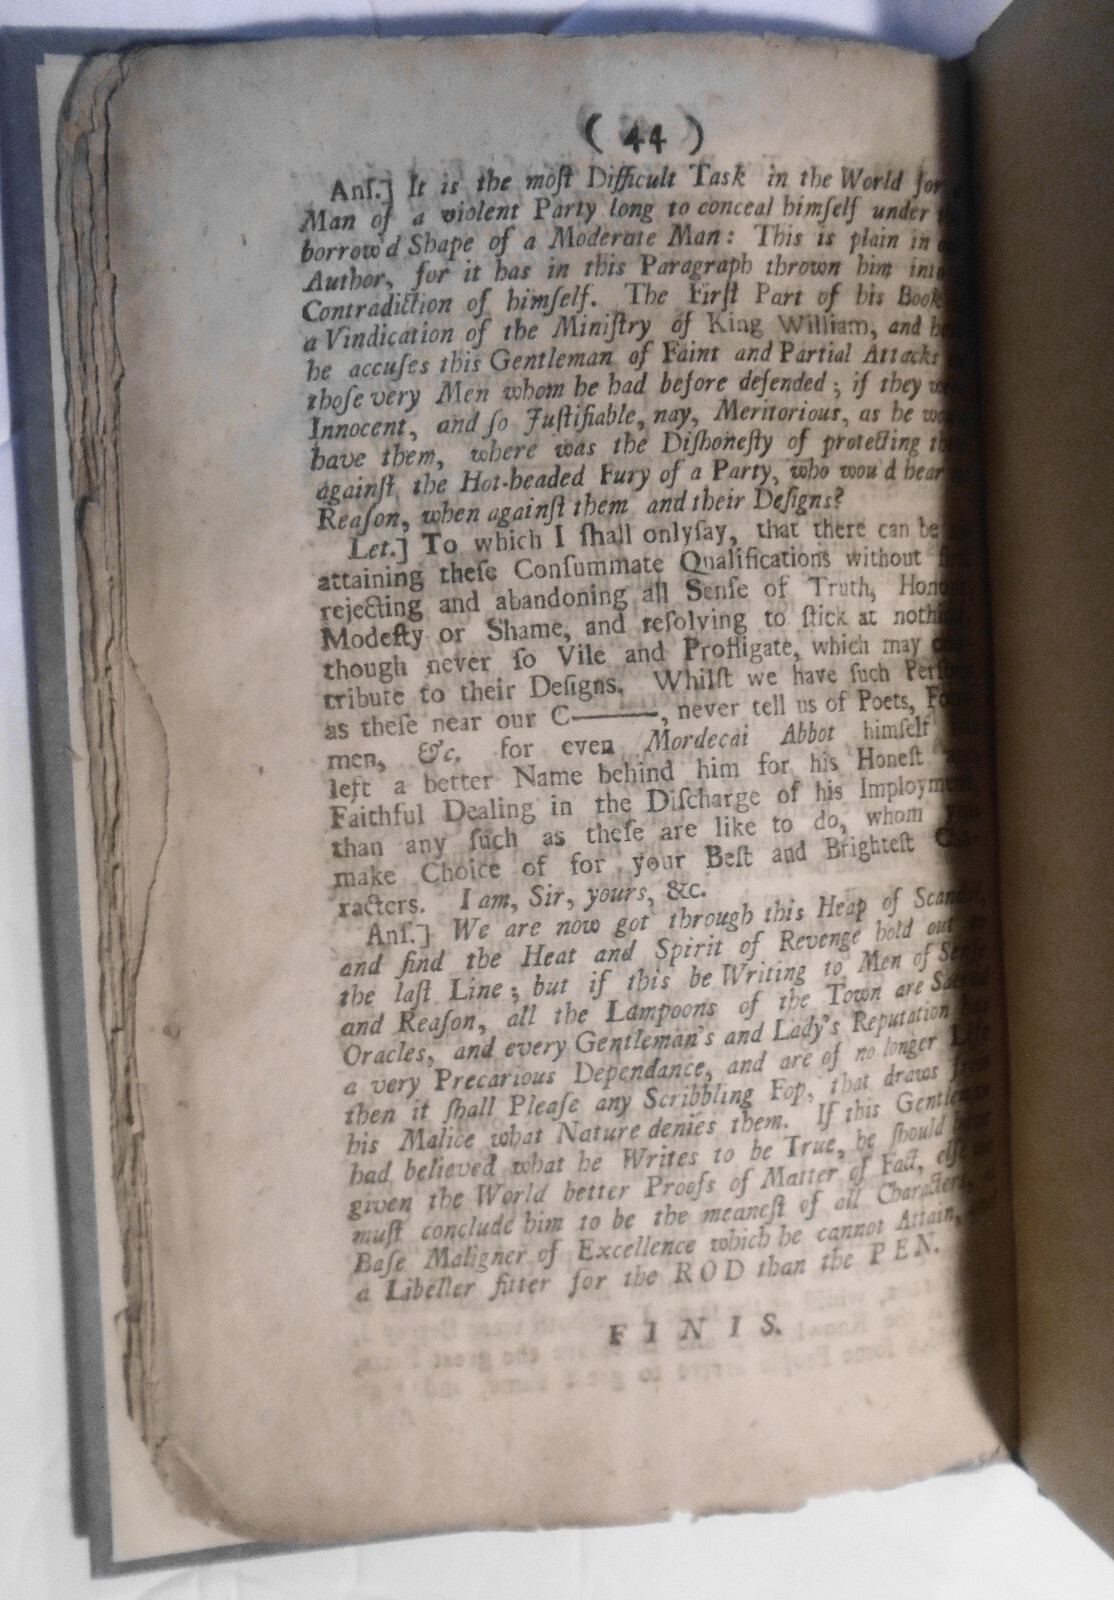 ( 44 )
Anſ.] It is the moſt Difficult Task in the World for
Man of a violent Party long to conceal himſelf under
borrow'd Shape of a Moderate Man: This is plain in
Author, for it has in this Paragraph thrown him into
Contradiction of himſelf. The Firſt Part of his Book
a Vindication of the Miniſtry of King William, and
he accuſes this Gentleman of Faint and Partial Attacks
thoſe very Men whom he had before defended; if they
Innocent, and ſo Juſtifiable, nay, Meritorious, as he
have them, where was the Diſhoneſty of protecting
againſt the Hot-headed Fury of a Party, who wou'd hear
Reaſon, when againſt them and their Deſigns?
Let.] To which I ſhall onlyſay, that there can be
attaining theſe Conſummate Qualifications without
rejecting and abandoning all Senſe of Truth,
Modeſty or Shame, and reſolving to ſtick at
though never ſo Vile and Profligate, which may
tribute to their Deſigns. Whilſt we have ſuch
as theſe near our C———, never tell us of Poets,
men, &c. for even Mordecai Abbot himſelf
left a better Name behind him for his Honeſt
Faithful Dealing in the Diſcharge of his
than any ſuch as theſe are like to do, whom
make Choice of for your Beſt and Brighteſt
racters. I am, Sir, yours, &c.
Anſ.] We are now got through this Heap of
and find the Heat and Spirit of Revenge hold out
the laſt Line; but if this be Writing to Men of
and Reaſon, all the Lampoons of the Town are
Oracles, and every Gentleman's and Lady's Reputation
a very Precarious Dependance, and are of no longer
then it ſhall Pleaſe any Scribbling Fop, that draws
his Malice what Nature denies them. If this
had believed what he Writes to be True, he ſhould
given the World better Proofs of Matter of Fact,
muſt conclude him to be the meaneſt of all Characters,
Baſe Maligner of Excellence which he cannot Attain,
a Libeller fitter for the ROD than the PEN.
FINIS.